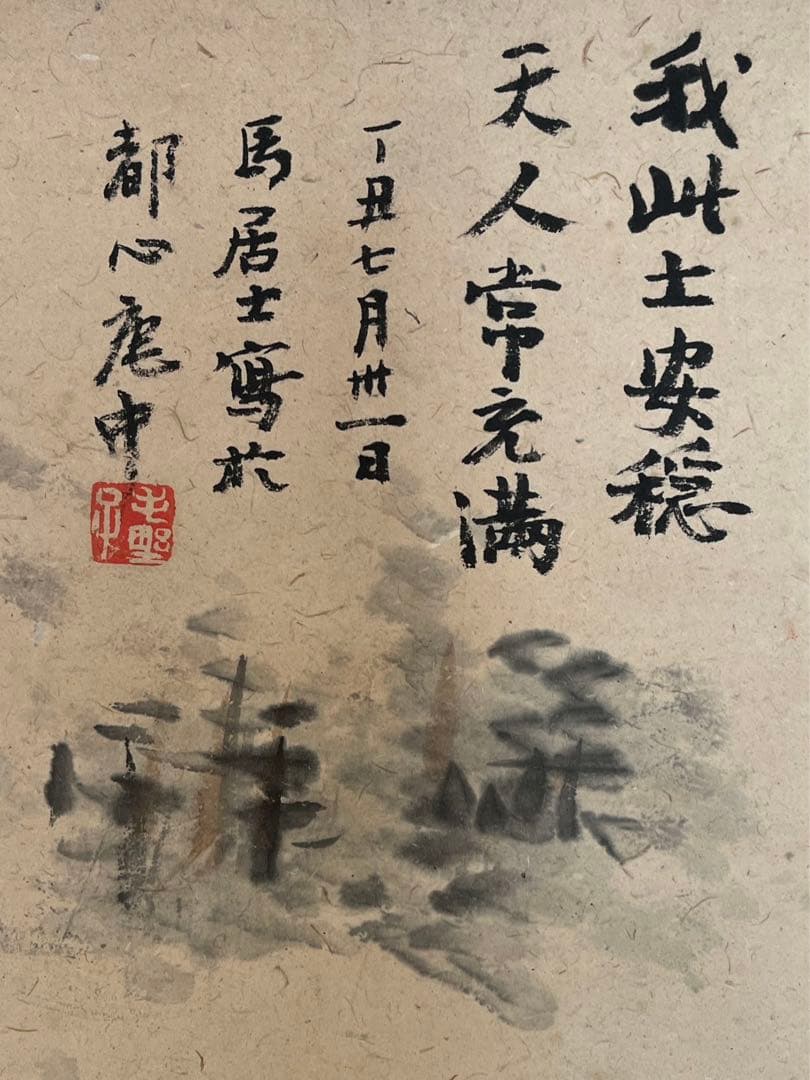 我此土安穩
天人常充滿
丁丑七月卅一日
馬居士寫於
都心庵中